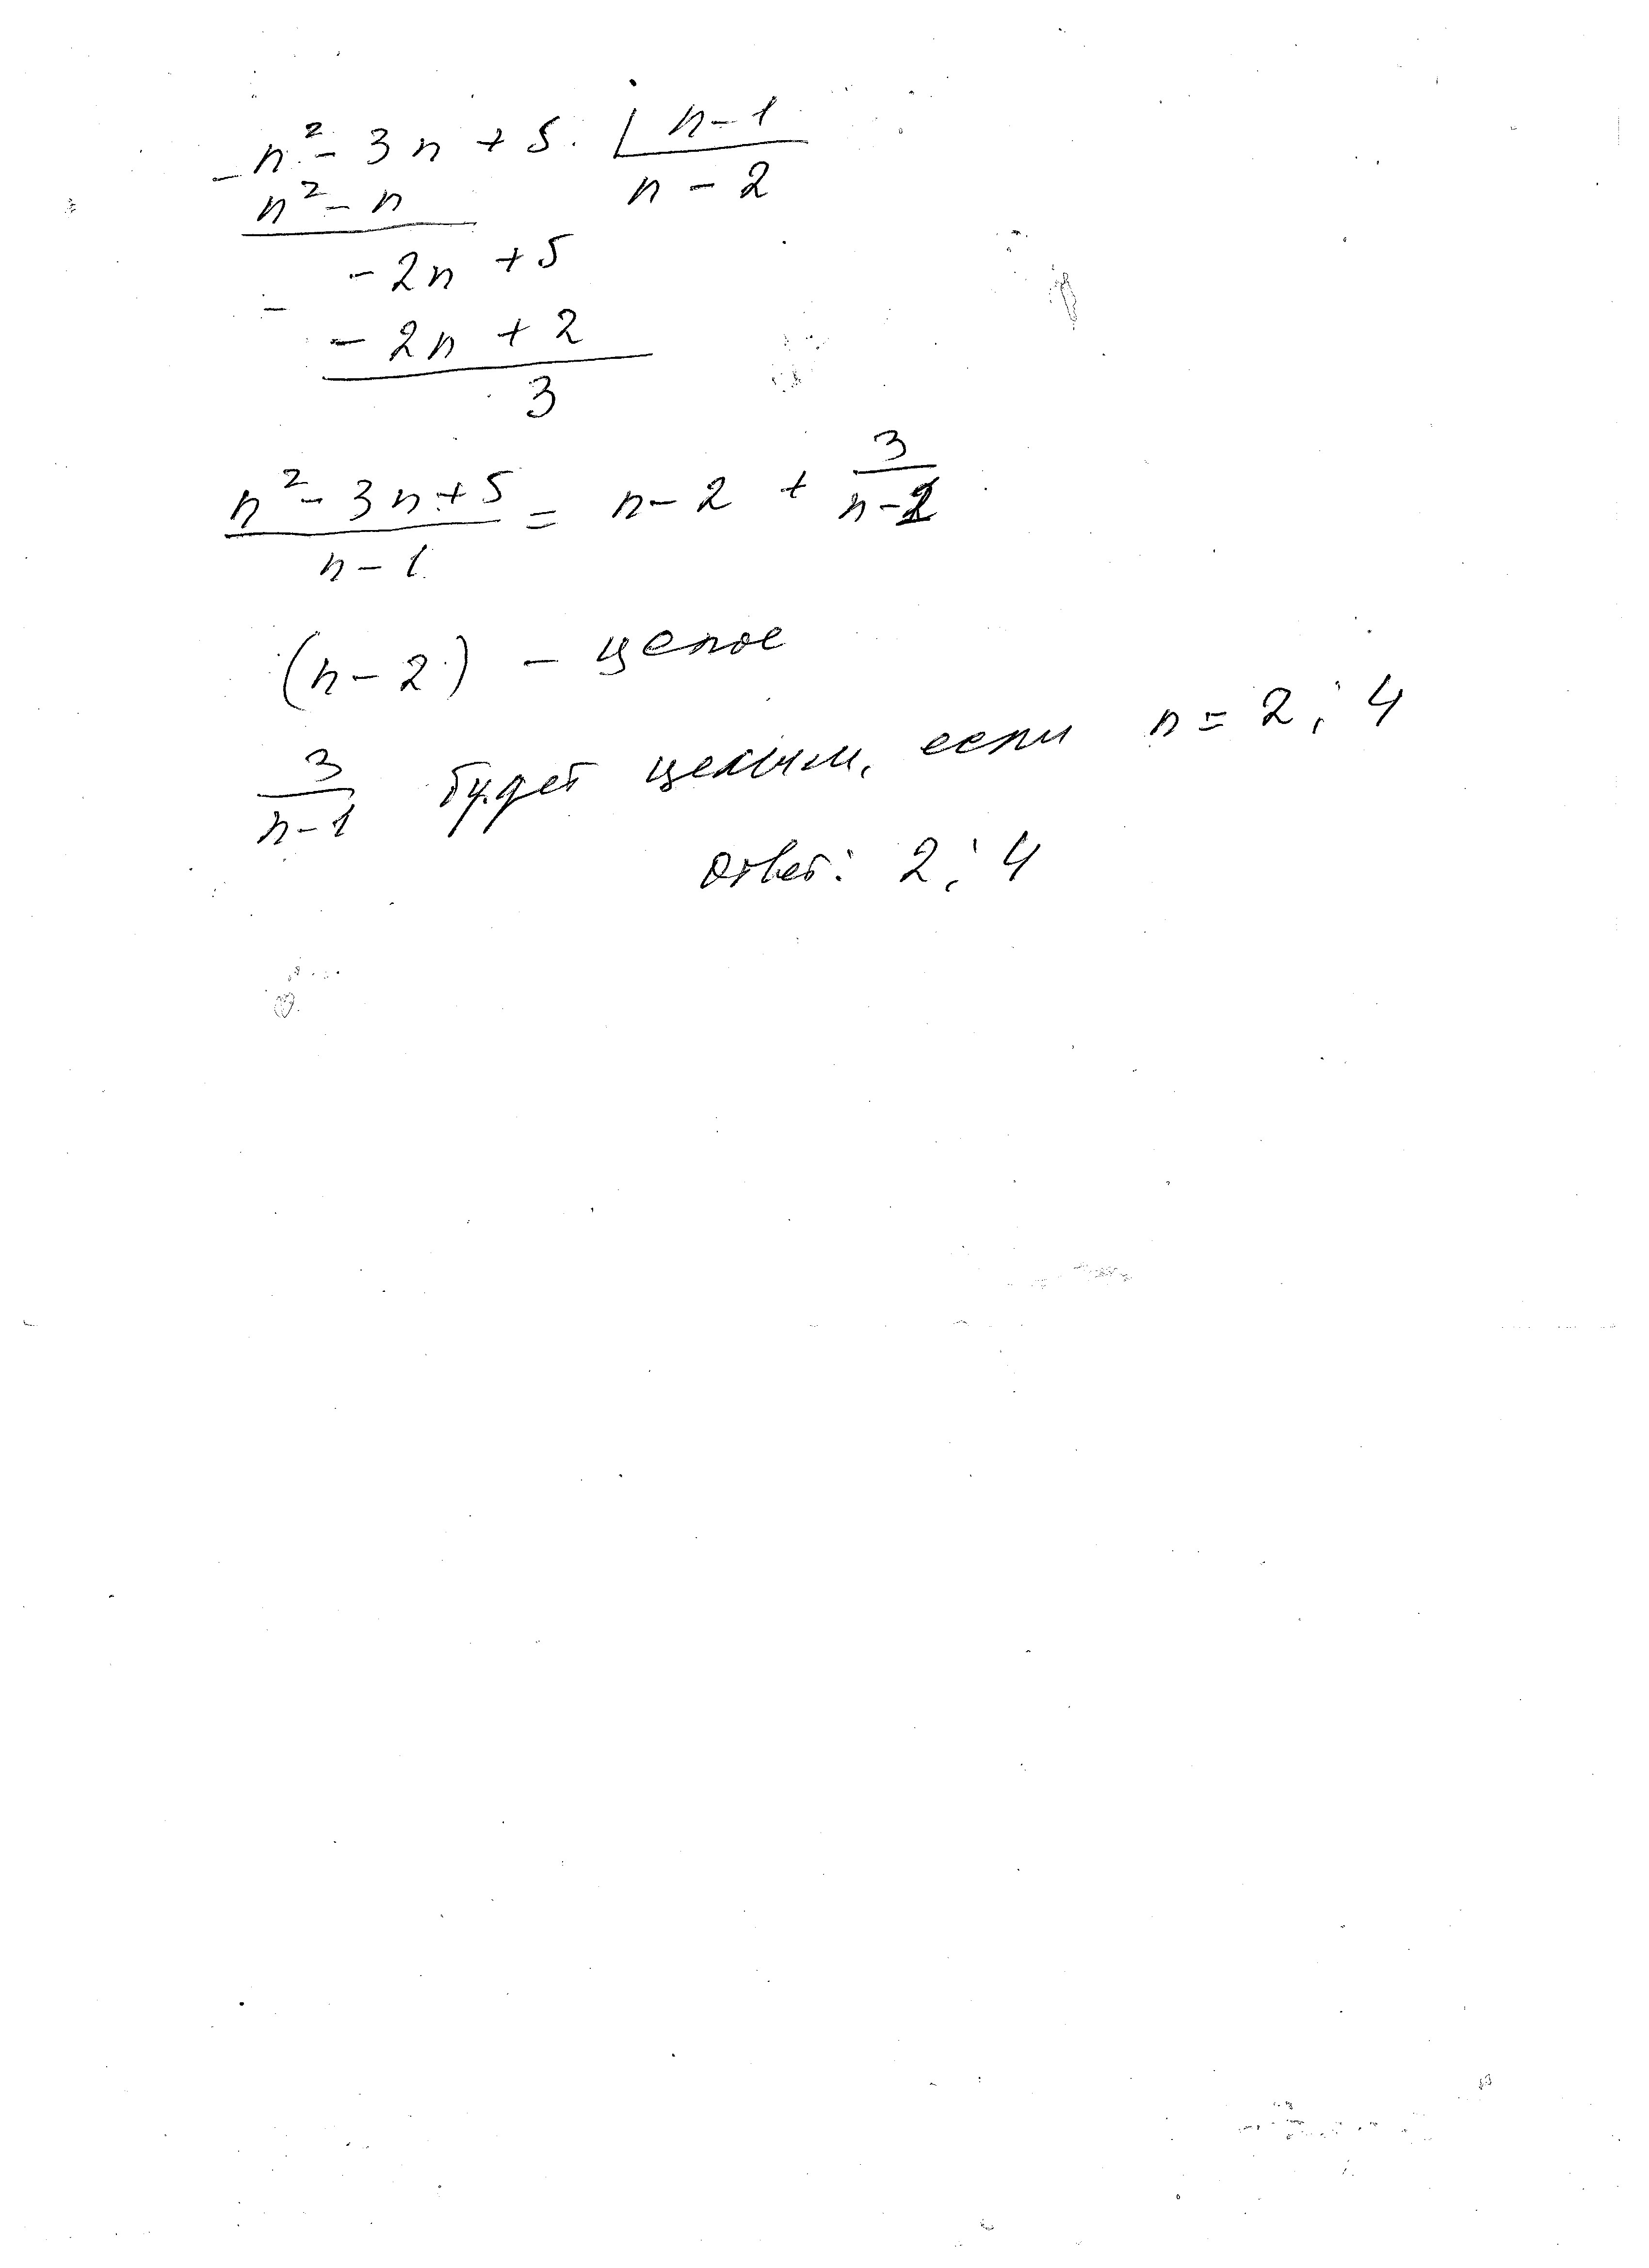 n² - 3n + 5 | n-1
n² - n n - 2
-2n + 5
- 2n + 2
3
(n² - 3n + 5)/(n - 1) = n - 2 + 3/(n-1)
(n - 2) - целое
3/(n-1) будет целым, если n = 2; 4
Ответ: 2; 4